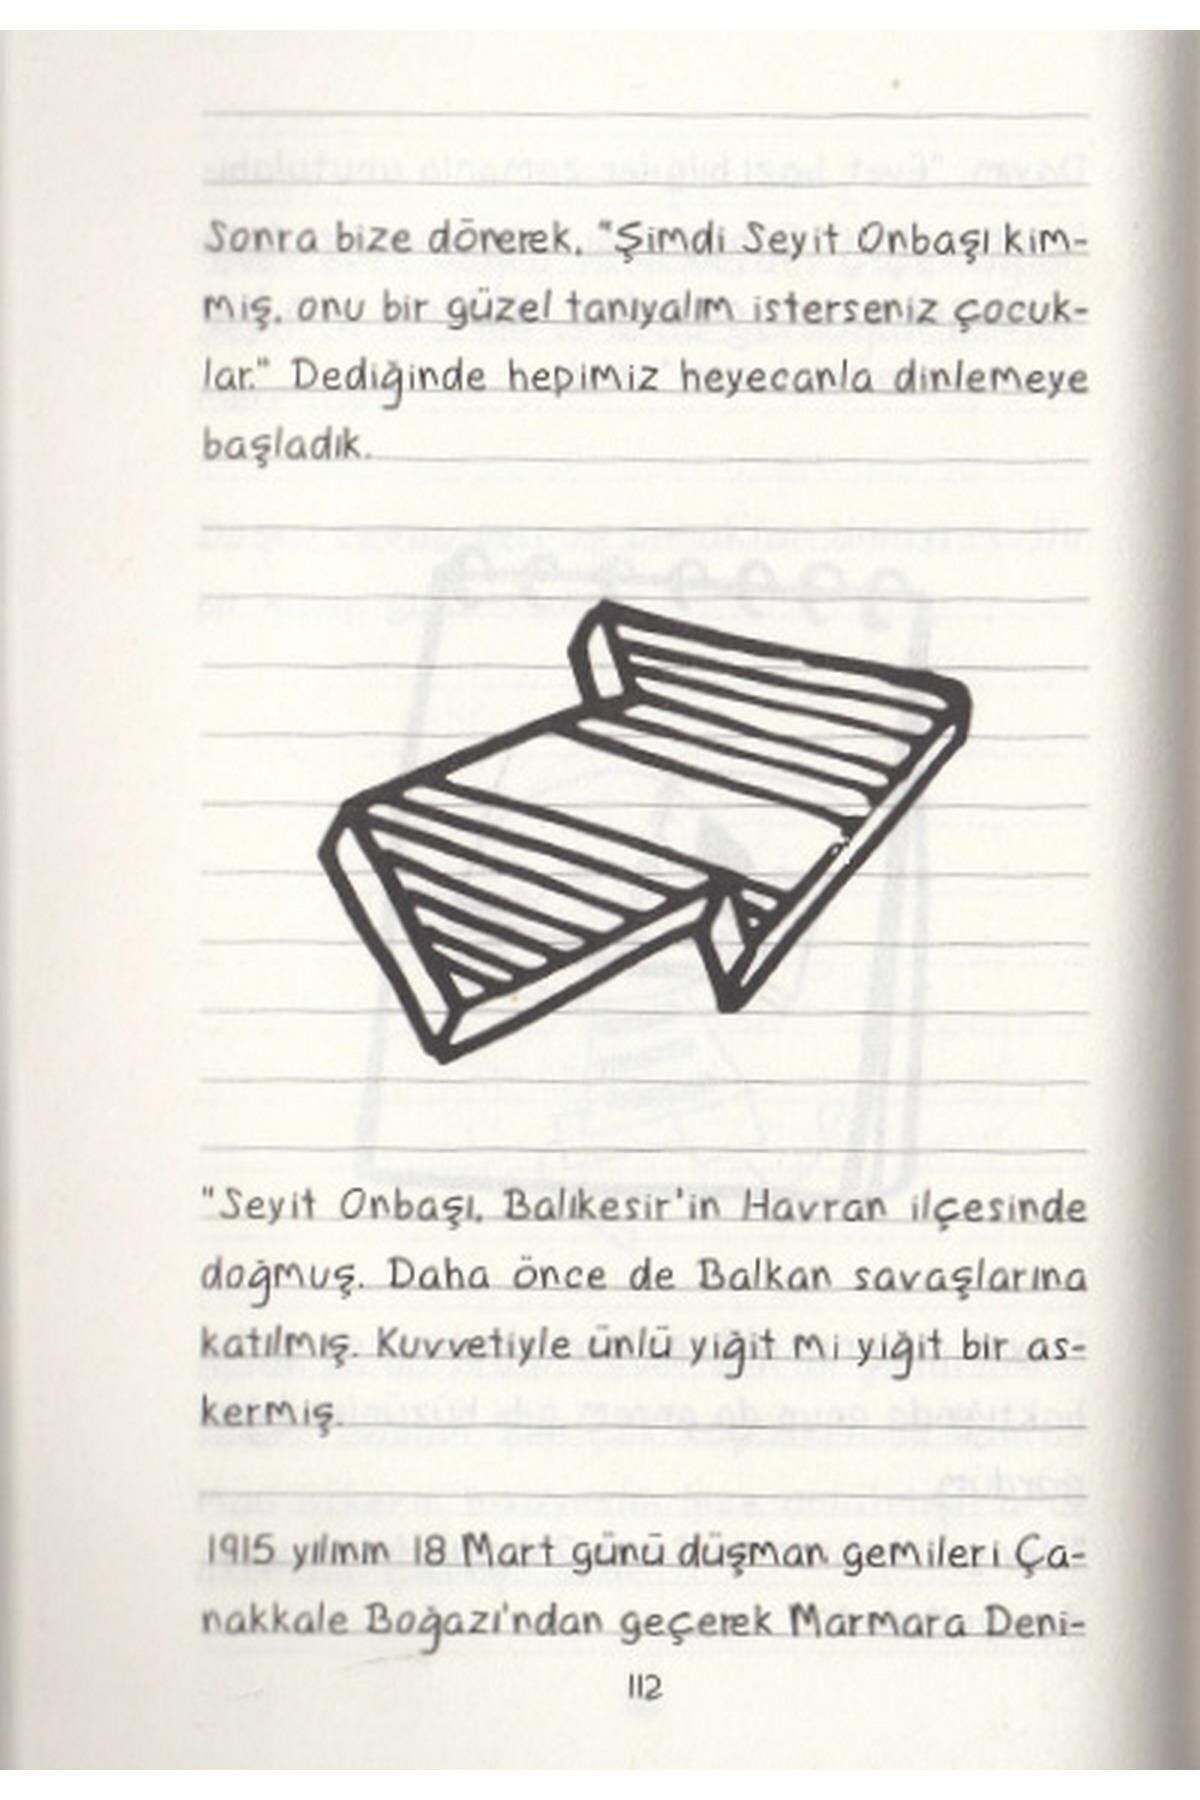 Sonra bize dönerek, "Şimdi Seyit Onbaşı kim-
miş, onu bir güzel tanıyalım isterseniz çocuk-
lar." Dediğinde hepimiz heyecanla dinlemeye
başladık.
"Seyit Onbaşı, Balıkesir'in Havran ilçesinde
doğmuş. Daha önce de Balkan savaşlarına
katılmış. Kuvvetiyle ünlü yiğit mi yiğit bir as-
kermiş.
1915 yılının 18 Mart günü düşman gemileri Ça-
nakkale Boğazı'ndan geçerek Marmara Deni-
112